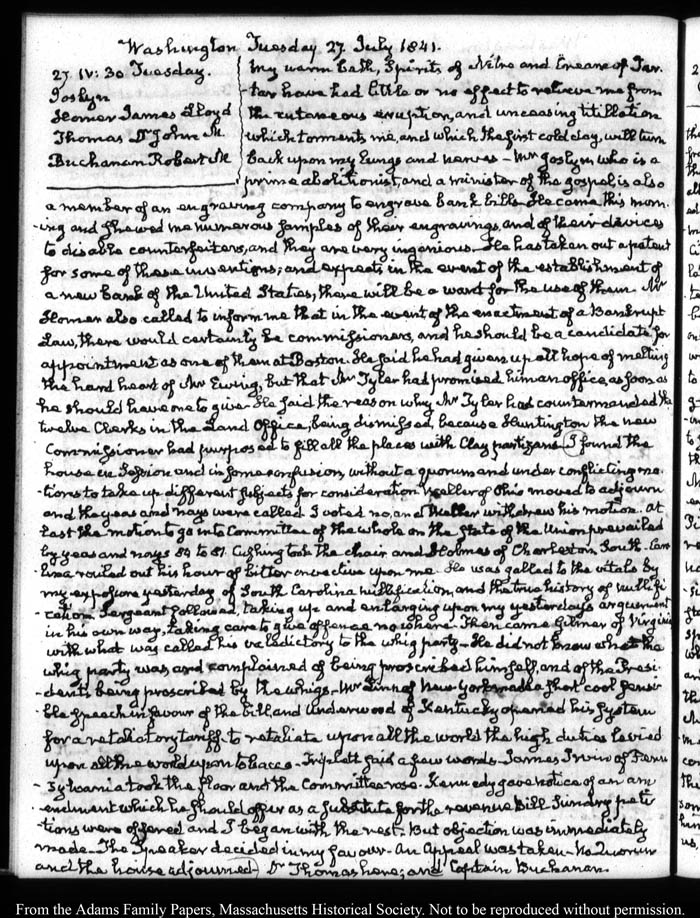 Washington Tuesday 27. July 1841.
27. IV: 30 Tuesday.
Joslyn
Homer James Lloyd
Thomas Dr John M.
Buchanan Robert M
My warm bath, Spirits of Nitre and Cream of Tar-
-tar have had little or no effect to relieve me from
the cutaneous eruption, and unceasing titillation
which torments me, and which the first cold day, will turn
back upon my lungs and nerves – Mr Joslyn, who is a
prime abolitionist, and a minister of the gospel is also
a member of an engraving company to engrave bank bills. He came this morn-
-ing and shewed me numerous samples of their engravings, and of their devices
to disable counterfeiters, and they are very ingenious. He has taken out a patent
for some of these inventions; and expects in the event of the establishment of
a new bank of the United States, there will be a want for the use of them – Mr
Homer also called to inform me that in the event of the enactment of a Bankrupt
Law, there would certainly be commissioners, and he should be a candidate for
appointment as one of them at Boston. He said he had given up all hope of melting
the hard heart of Mr Ewing, but that Mr Tyler had promised him an office as soon as
he should have one to give. He said the reason why Mr Tyler had countermanded the
twelve Clerks in the Land Office, being dismissed, because Huntington the new
Commissioner had purposed to fill all the places with Clay partizans. I found the
house in Session and in some confusion, without a quorum and under conflicting mo-
-tions to take up different subjects for consideration Weller of Ohio moved to adjourn
and the yeas and nays were called I voted no, and Weller withdrew his motion. At
last the motion to go into Committee of the whole on the State of the Union prevailed
by yeas and nays 84 to 81. Cushing took the chair and Holmes of Charleston South-Caro-
lina rouled out his hour of bitter invective upon me. He was galled to the vitals by
my exposure yesterday, of South Carolina nullification, and the true history of nullifi-
-cation. Sergeant followed, taking up and enlarging upon my yesterday's argument
in his own way, taking care to give offence no where – Then came Gilmer of Virginia
with what was called his valedictory to the whig party – He did not know what the
whig party was, and complained of being proscribed himself, and of the Presi-
-dent's being proscribed by the whigs – Mr Linn of New York made a short cool sensi-
ble speech in favour of the bill, and Underwood of Kentucky opened his system
for a retaliatory tariff to retaliate upon all the world the high duties levied
upon all the world upon tobacco – Triplett said a few words – James Irwin of Penn-
-sylvania took the floor and the Committee rose. Kennedy gave notice of an am-
endment which he should offer as a substitute for the revenue Bill Sundry peti-
tions were offered and I began with the rest. But objection was immediately
made – The Speaker decided in my favour – An Appeal was taken – No Quorum
and the house adjourned – Dr Thomas here; and Captain Buchanan.
From the Adams Family Papers, Massachusetts Historical Society. Not to be reproduced without permission.